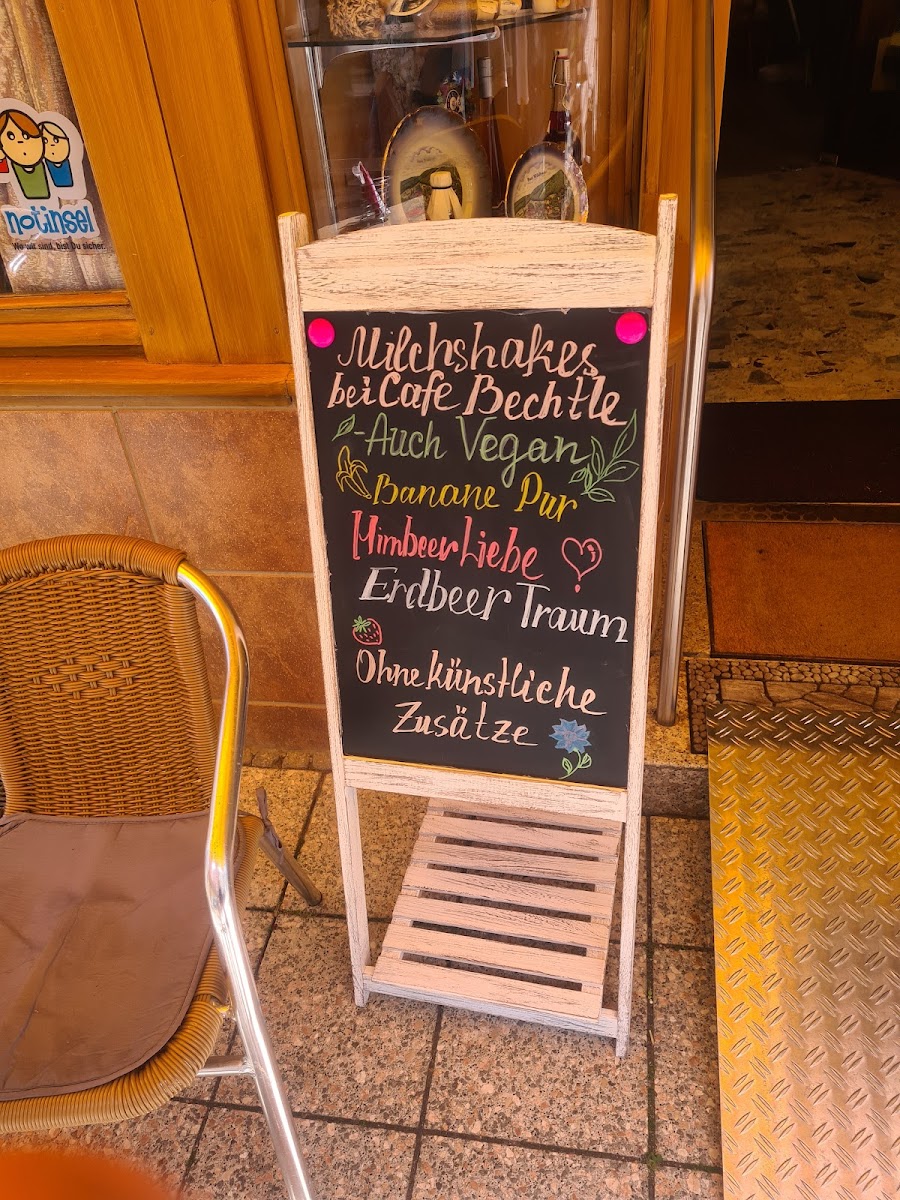 notinsel
Wo wir sind, bist Du sicher.
Milchshakes
bei Cafe Bechtle
-Auch Vegan
Banane Pur
Himbeer Liebe
Erdbeer Traum
Ohne künstliche
Zusätze